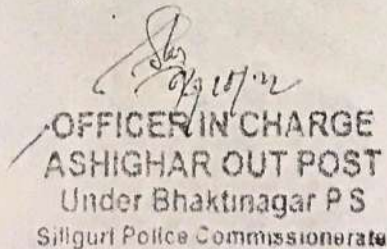 OFFICER IN CHARGE
ASHIGHAR OUT POST
Under Bhaktinagar P S
Siliguri Police Commissionerate